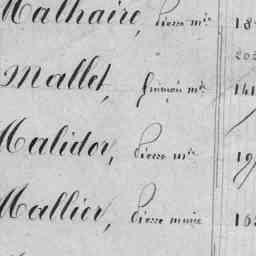 Malhaire, Pierre m.ie 18
202
Mallet, François m.ie 141
Malider, Pierre m.ie 19
Mallier, Pierre marie 162